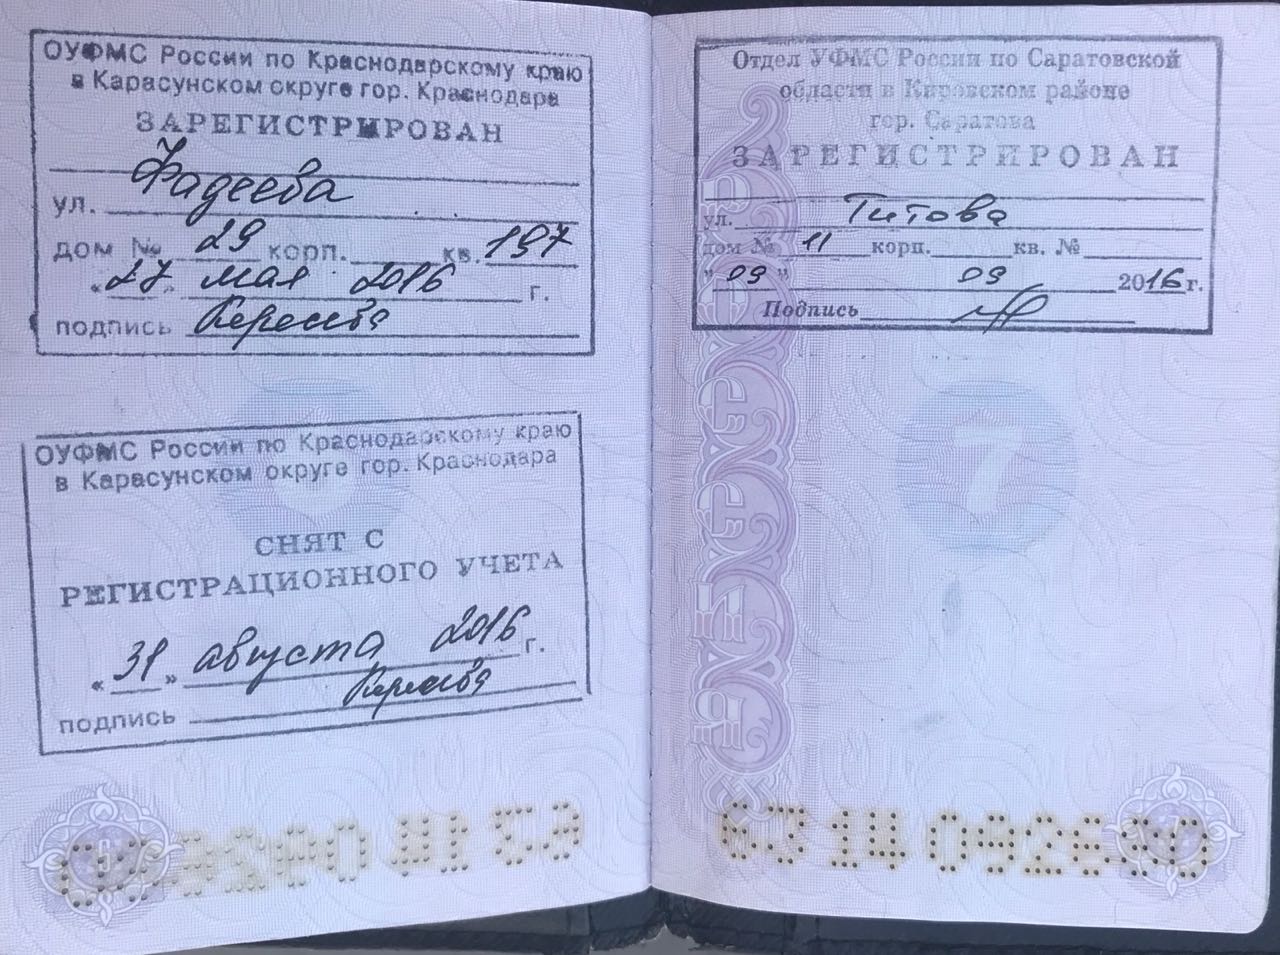 ОУФМС России по Краснодарскому краю
в Карасунском округе гор. Краснодара
ЗАРЕГИСТРИРОВАН
Фадеева
ул.
дом № 29 корп. кв. 197
"27" мая 2016 г.
подпись
ОУФМС России по Краснодарскому краю
в Карасунском округе гор. Краснодара
СНЯТ С
РЕГИСТРАЦИОННОГО УЧЕТА
«31» августа 2016 г.
подпись
Отдел УФМС России по Саратовской
области в Кировском районе
гор. Саратова
ЗАРЕГИСТРИРОВАН
ул. Титова
дом № 11 корп. кв. №
"09" 09 2016 г.
Подпись
7
РОССИЯ
63 14